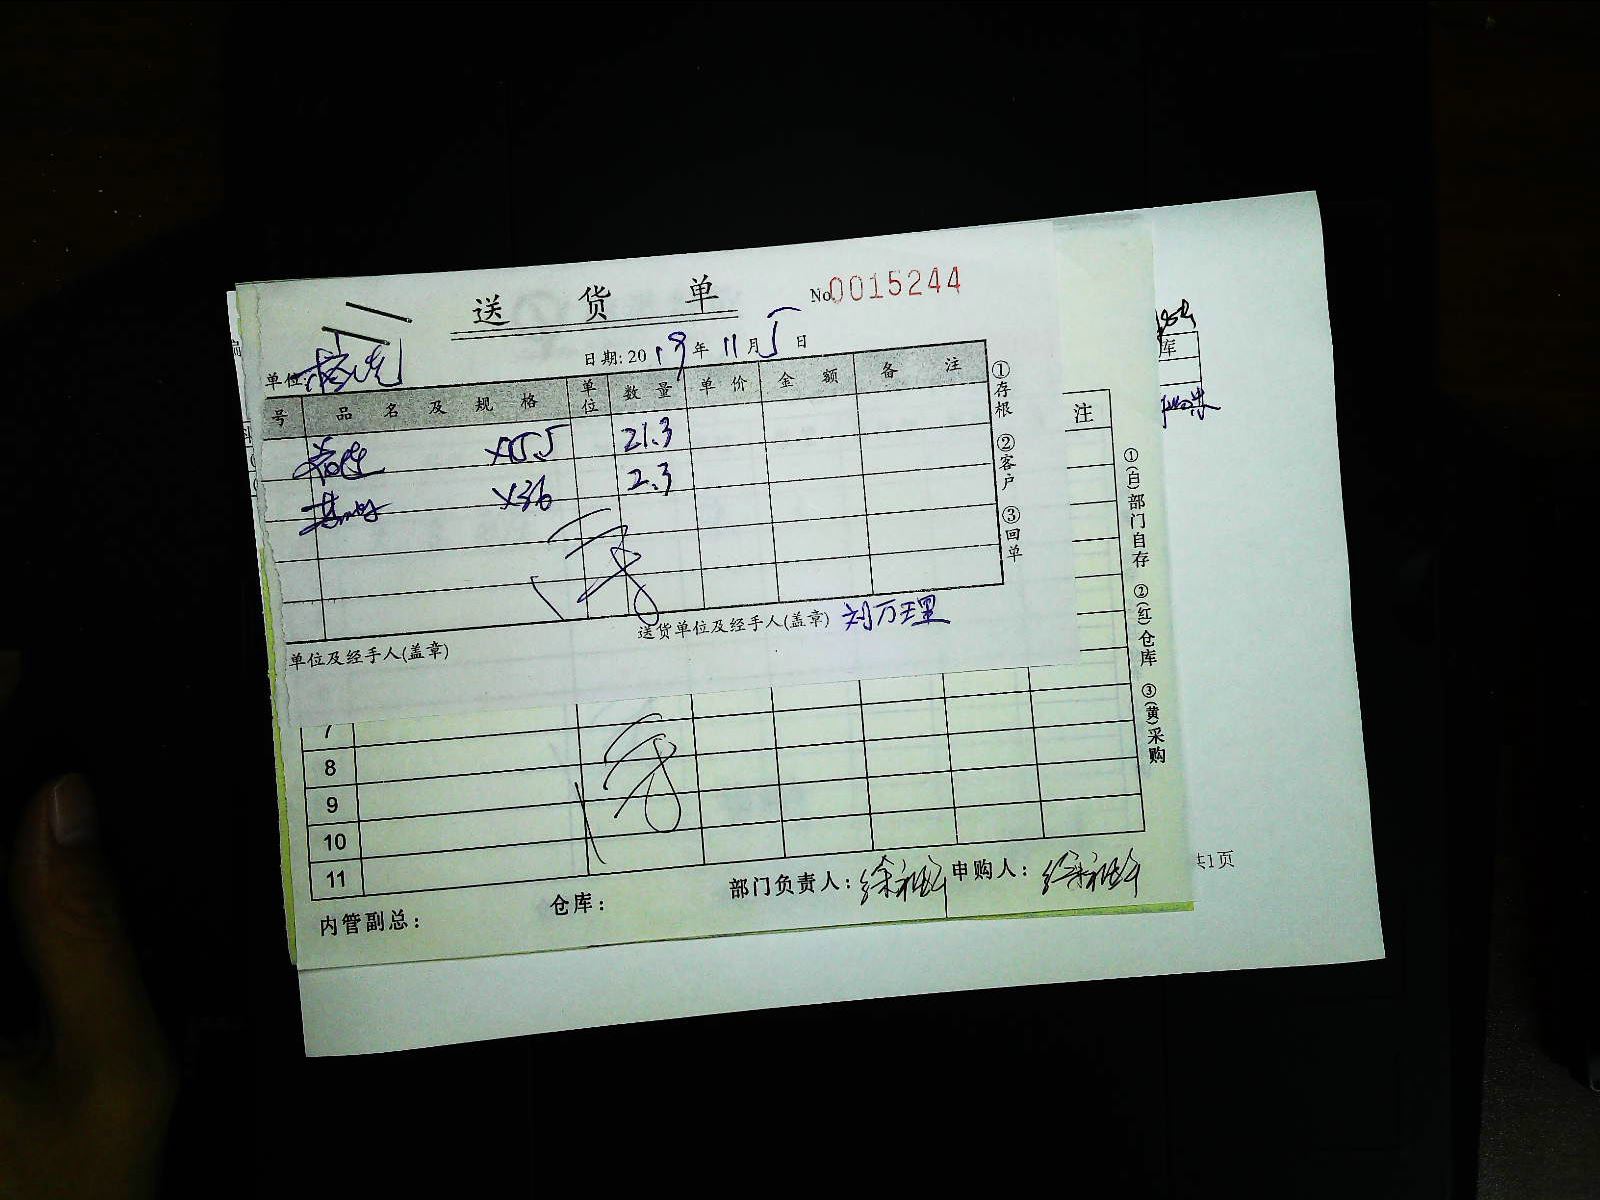 送货单 No 0015244
单位:
日期: 2019年11月5日
号 品名及规格 单位 数量 单价 金额 备注
x15.5 21.3
x36 2.3
①存根 ②客户 ③回单
单位及经手人(盖章) 送货单位及经手人(盖章) 刘万理
注
库
①(白)部门自存 ②(红)仓库 ③(黄)采购
7
8
9
10
11
内管副总: 仓库: 部门负责人: 申购人:
共1页